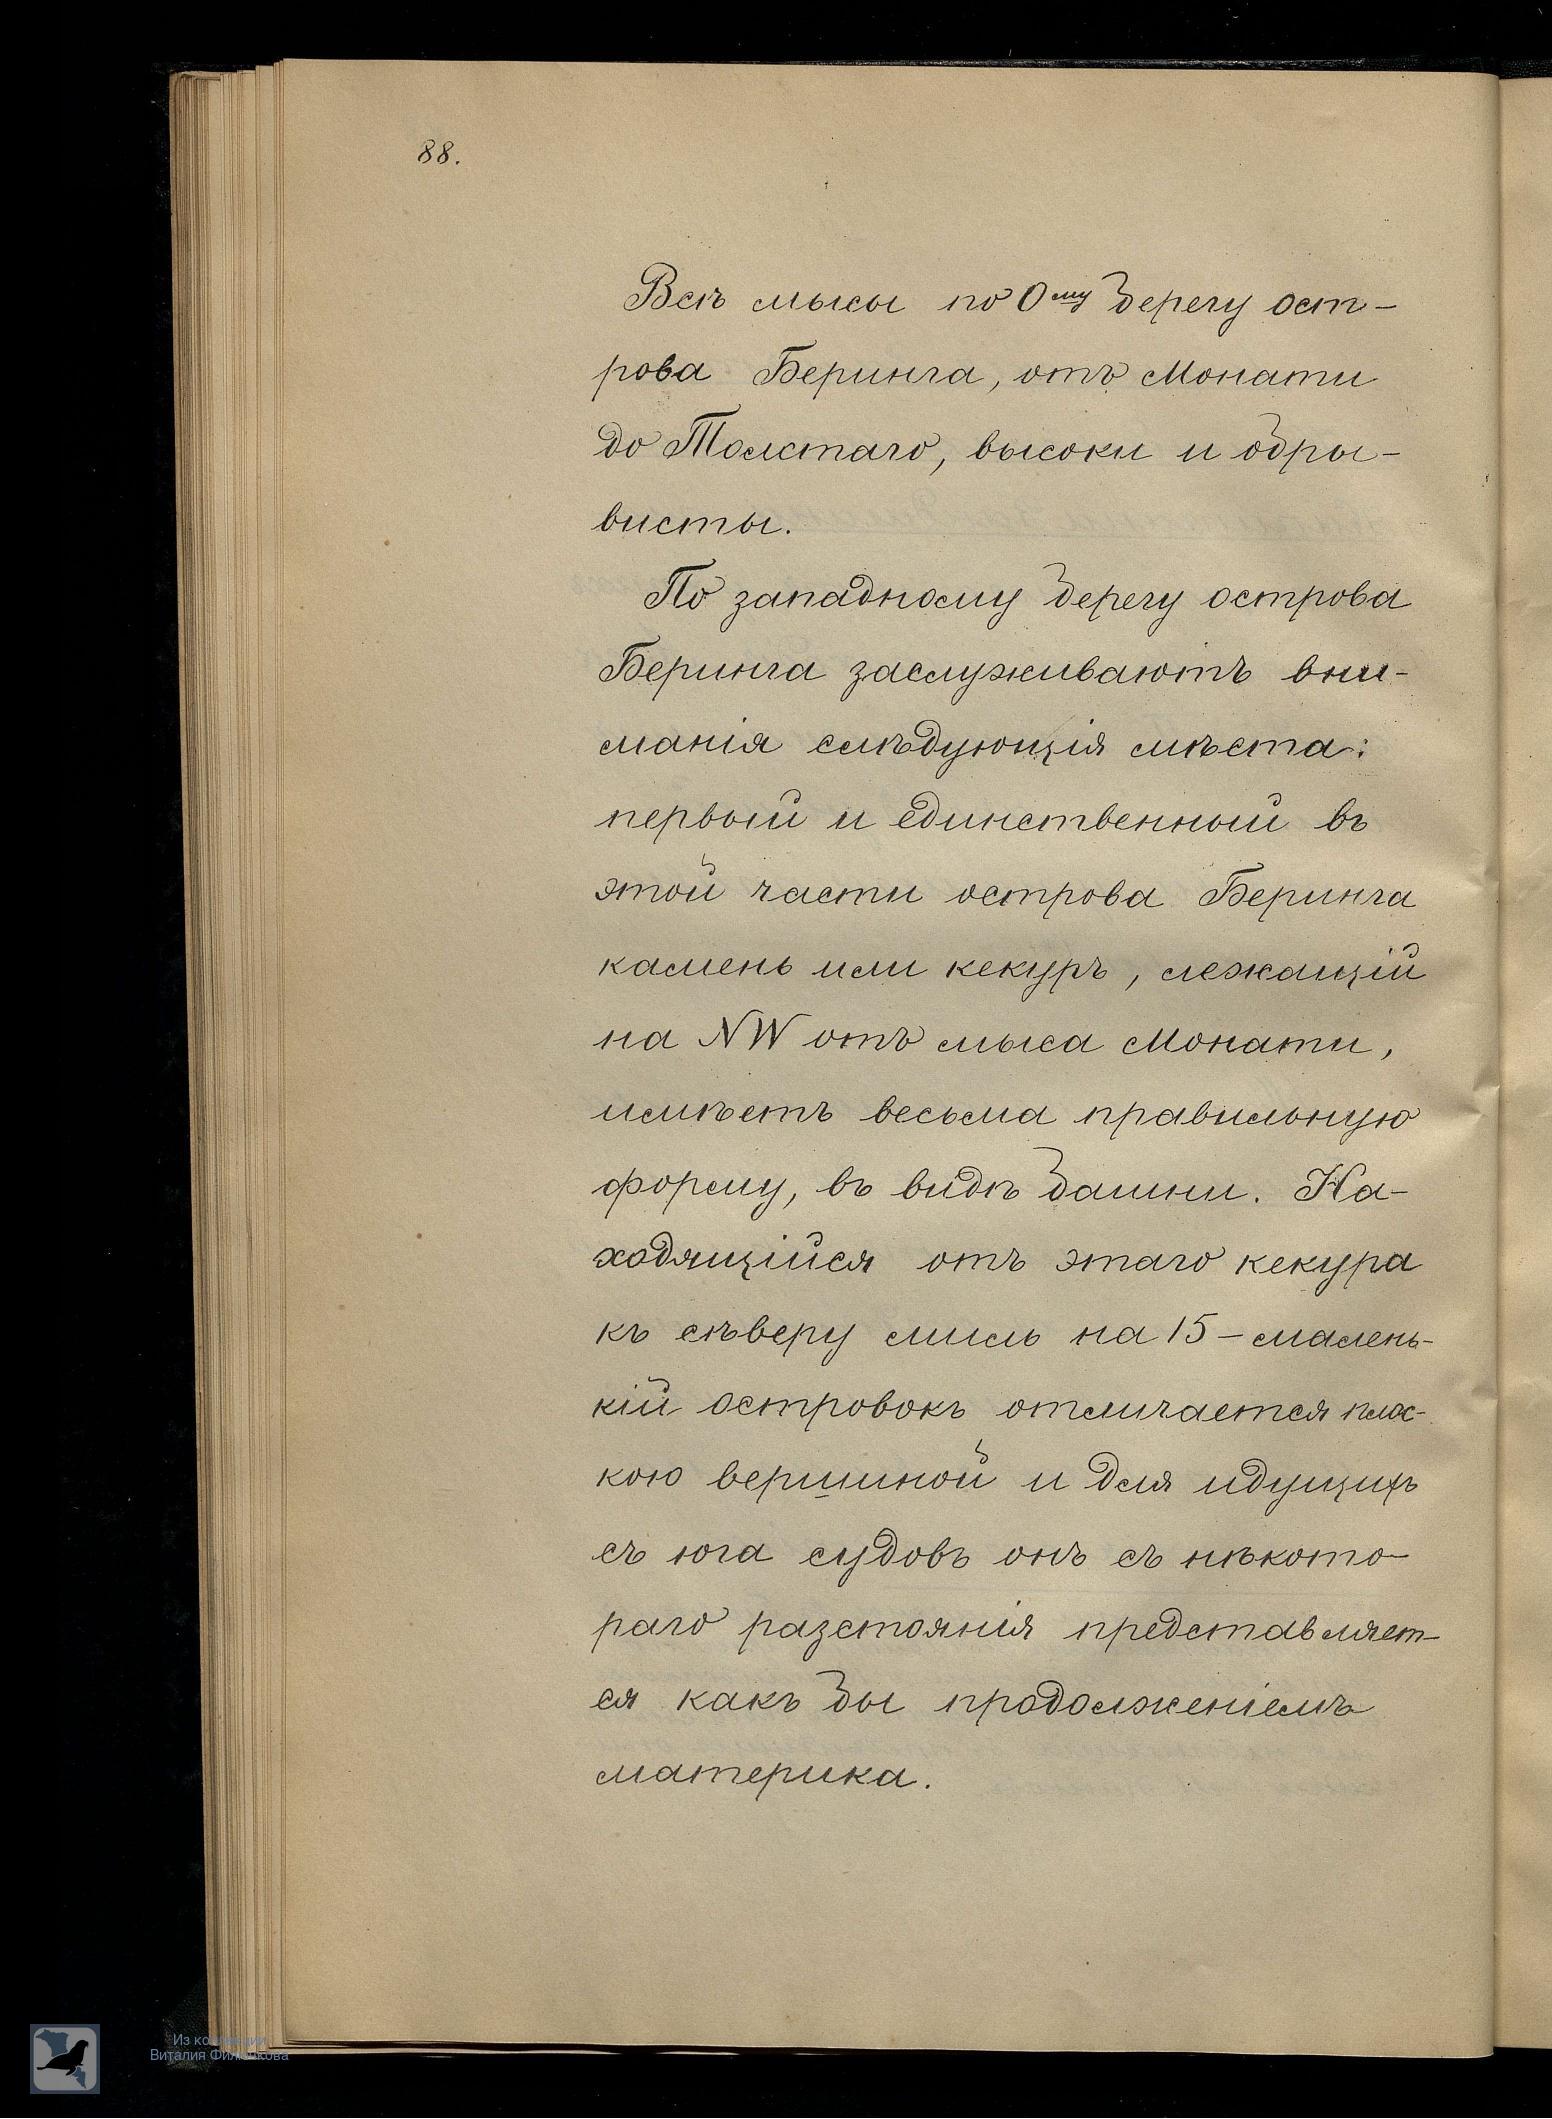 88.
Всѣ мысы по Ому берегу ост-
рова Беринга, отъ Монати
до Толстаго, высоки и обры-
висты.
По западному берегу острова
Беринга заслуживаютъ вни-
манія слѣдующія мѣста:
первый и единственный въ
этой части острова Беринга
камень или кекуръ, лежащій
на NW отъ мыса Монати,
имѣетъ весьма правильную
форму, въ видѣ башни. На-
ходящійся отъ этаго кекура
къ сѣверу миль на 15 - малень-
кій островокъ отличается плос-
кою вершиной и для идущихъ
съ юга судовъ онъ съ нѣкото-
раго разстоянія представляет-
ся какъ бы продолженіемъ
материка.
Из коллекции
Виталия Филючкова